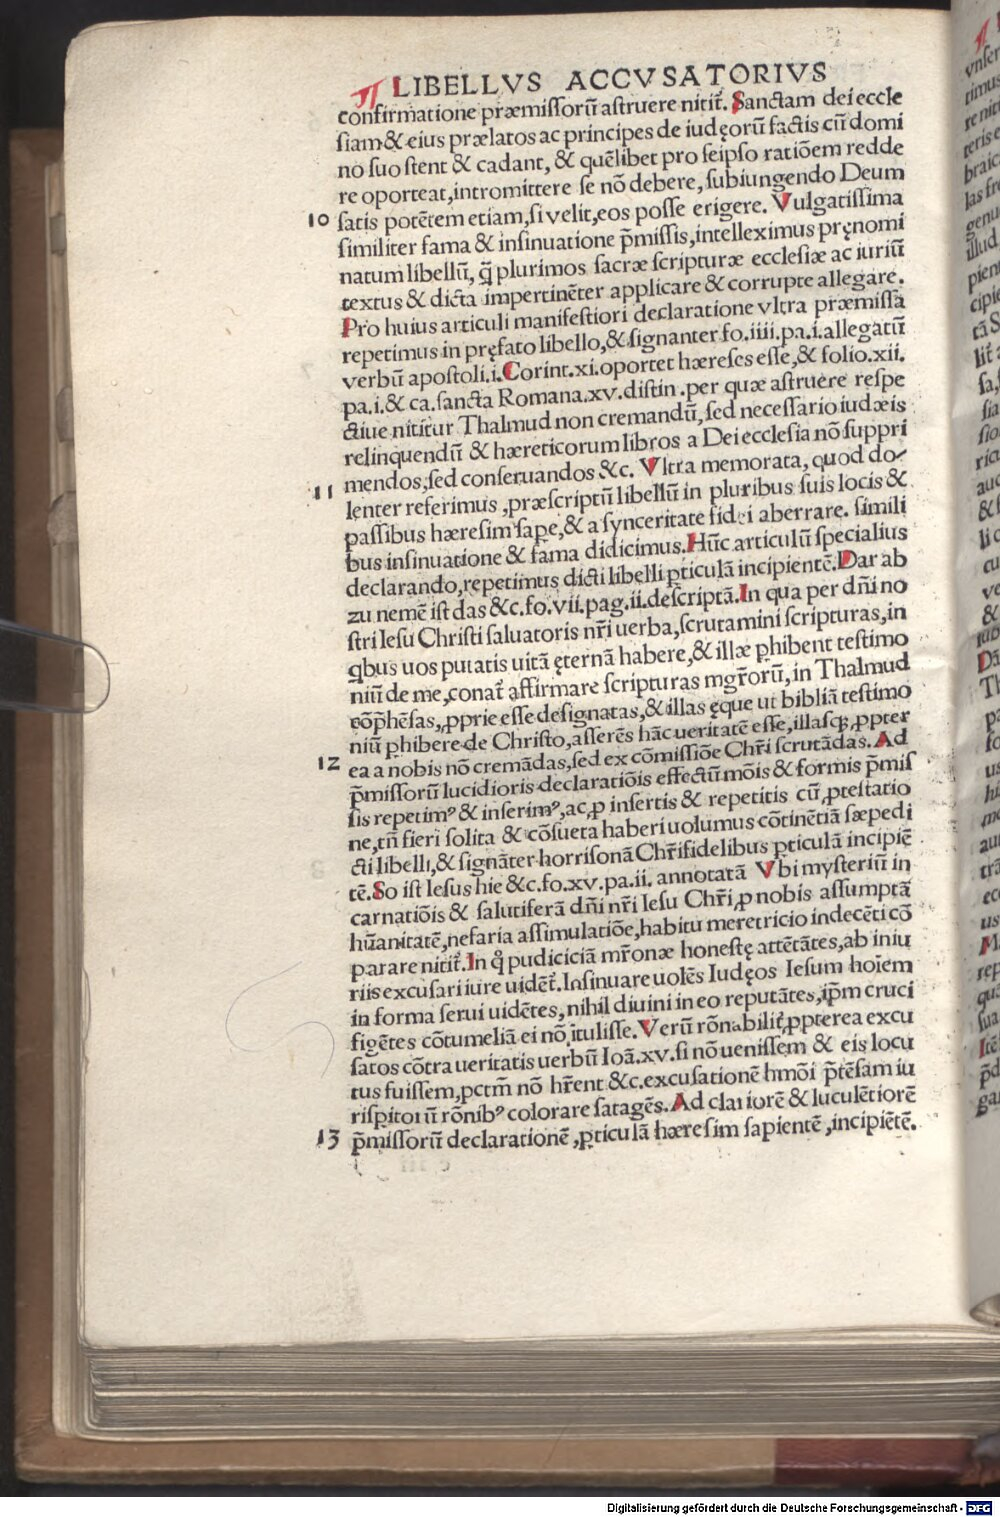 LIBELLVS ACCVSATORIVS
confirmatione præmiſſorū aſtruere nitit̄. Sanctam dei eccle
ſiam & eius prælatos ac principes de iudęorū factis cū domi
no ſuo ſtent & cadant, & quēlibet pro ſeipſo ratiōem redde
re oporteat, intromittere ſe nō debere, ſubiungendo Deum
10 ſatis potētem etiam, ſi velit, eos poſſe erigere. Vulgatiſſima
ſimiliter fama & inſinuatione p̄miſſis, intelleximus pręnomi
natum libellū, q̄ plurimos ſacræ ſcripturæ eccleſiæ ac iuriū
textus & dicta impertinēter applicare & corrupte allegare.
Pro huius articuli manifeſtiori declaratione vltra præmiſſa
repetimus in pręfato libello, & ſignanter fo.iiii.pa.i.allegatū
verbū apoſtoli.i.Corint.xi.oportet hæreſes eſſe, & folio.xii.
pa.i.& ca.ſancta Romana.xv.diſtin.per quæ aſtruere reſpe
ctiue nititur Thalmud non cremandū, ſed neceſſario iudæis
relinquendū & hæreticorum libros a Dei eccleſia nō ſuppri
mendos, ſed conſeruandos &c. Vltra memorata, quod do⸗
11 lenter referimus, præſcriptū libellū in pluribus ſuis locis &
paſſibus hæreſim ſape, & a ſynceritate fidei aberrare. ſimili
bus inſinuatione & fama didicimus. Hūc articulū ſpecialius
declarando, repetimus dicti libelli ꝑticulā incipientē. Dar ab
zu nemē iſt das &c.fo.vii.pag.ii.deſcriptā. In qua per dn̄i no
ſtri Ieſu Chriſti ſaluatoris nr̄i uerba, ſcrutamini ſcripturas, in
qbus uos putatis uitā ęternā habere, & illæ ꝑhibent teſtimo
niū de me, conat̄ affirmare ſcripturas mgr̄orū, in Thalmud
cōp̄hēſas, ꝓprie eſſe deſignatas, & illas ęque ut bibliā teſtimo
niū ꝑhibere de Chriſto, aſſerēs hāc ueritatē eſſe, illaſqꝫ ꝓpter
12 ea a nobis nō cremādas, ſed ex cōmiſſiōe Chr̄i ſcrutādas. Ad
p̄miſſorū lucidioris declaratiōis effectū mōis & formis p̄miſ
ſis repetimꝰ & inſerimꝰ, ac, ꝓ inſertis & repetitis cū ꝓteſtatio
ne, tn̄ fieri ſolita & cōſueta haberi uolumus cōtinētiā ſæpedi
cti libelli, & ſignāter horriſonā Chr̄ifidelibus ꝑticulā incipiē
tē. So iſt Ieſus hie &c.fo.xv.pa.ii. annotatā Vbi myſteriū in
carnatiōis & ſalutiferā dn̄i nr̄i Ieſu Chr̄i, ꝓ nobis aſſumptā
hūanitatē, nefaria aſſimulatiōe, habitu meretricio indecēti cō
parare nitit̄. In q̊ pudiciciā mr̄onæ honeſtę attētātes, ab iniu
riis excuſari iure uidēt̄. Inſinuare uolēs Iudęos Ieſum hoīem
in forma ſerui uidētes, nihil diuini in eo reputātes, ip̄m cruci
figētes cōtumeliā ei nō ītuliſſe. Verū rōnabilit̄, ꝓpterea excu
ſatos cōtra ueritatis uerbū Ioā.xv.ſi nō ueniſſem & eis locu
tus fuiſſem, pctm̄ nō hr̄ent &c.excuſationē hmōi p̄tēſam iu
riſpitorū rōnibꝰ colorare ſatagēs. Ad clariorē & luculētiorē
13 p̄miſſorū declarationē, ꝑticulā hæreſim ſapientē, incipiētē.
Digitalisierung gefördert durch die Deutsche Forschungsgemeinschaft - DFG